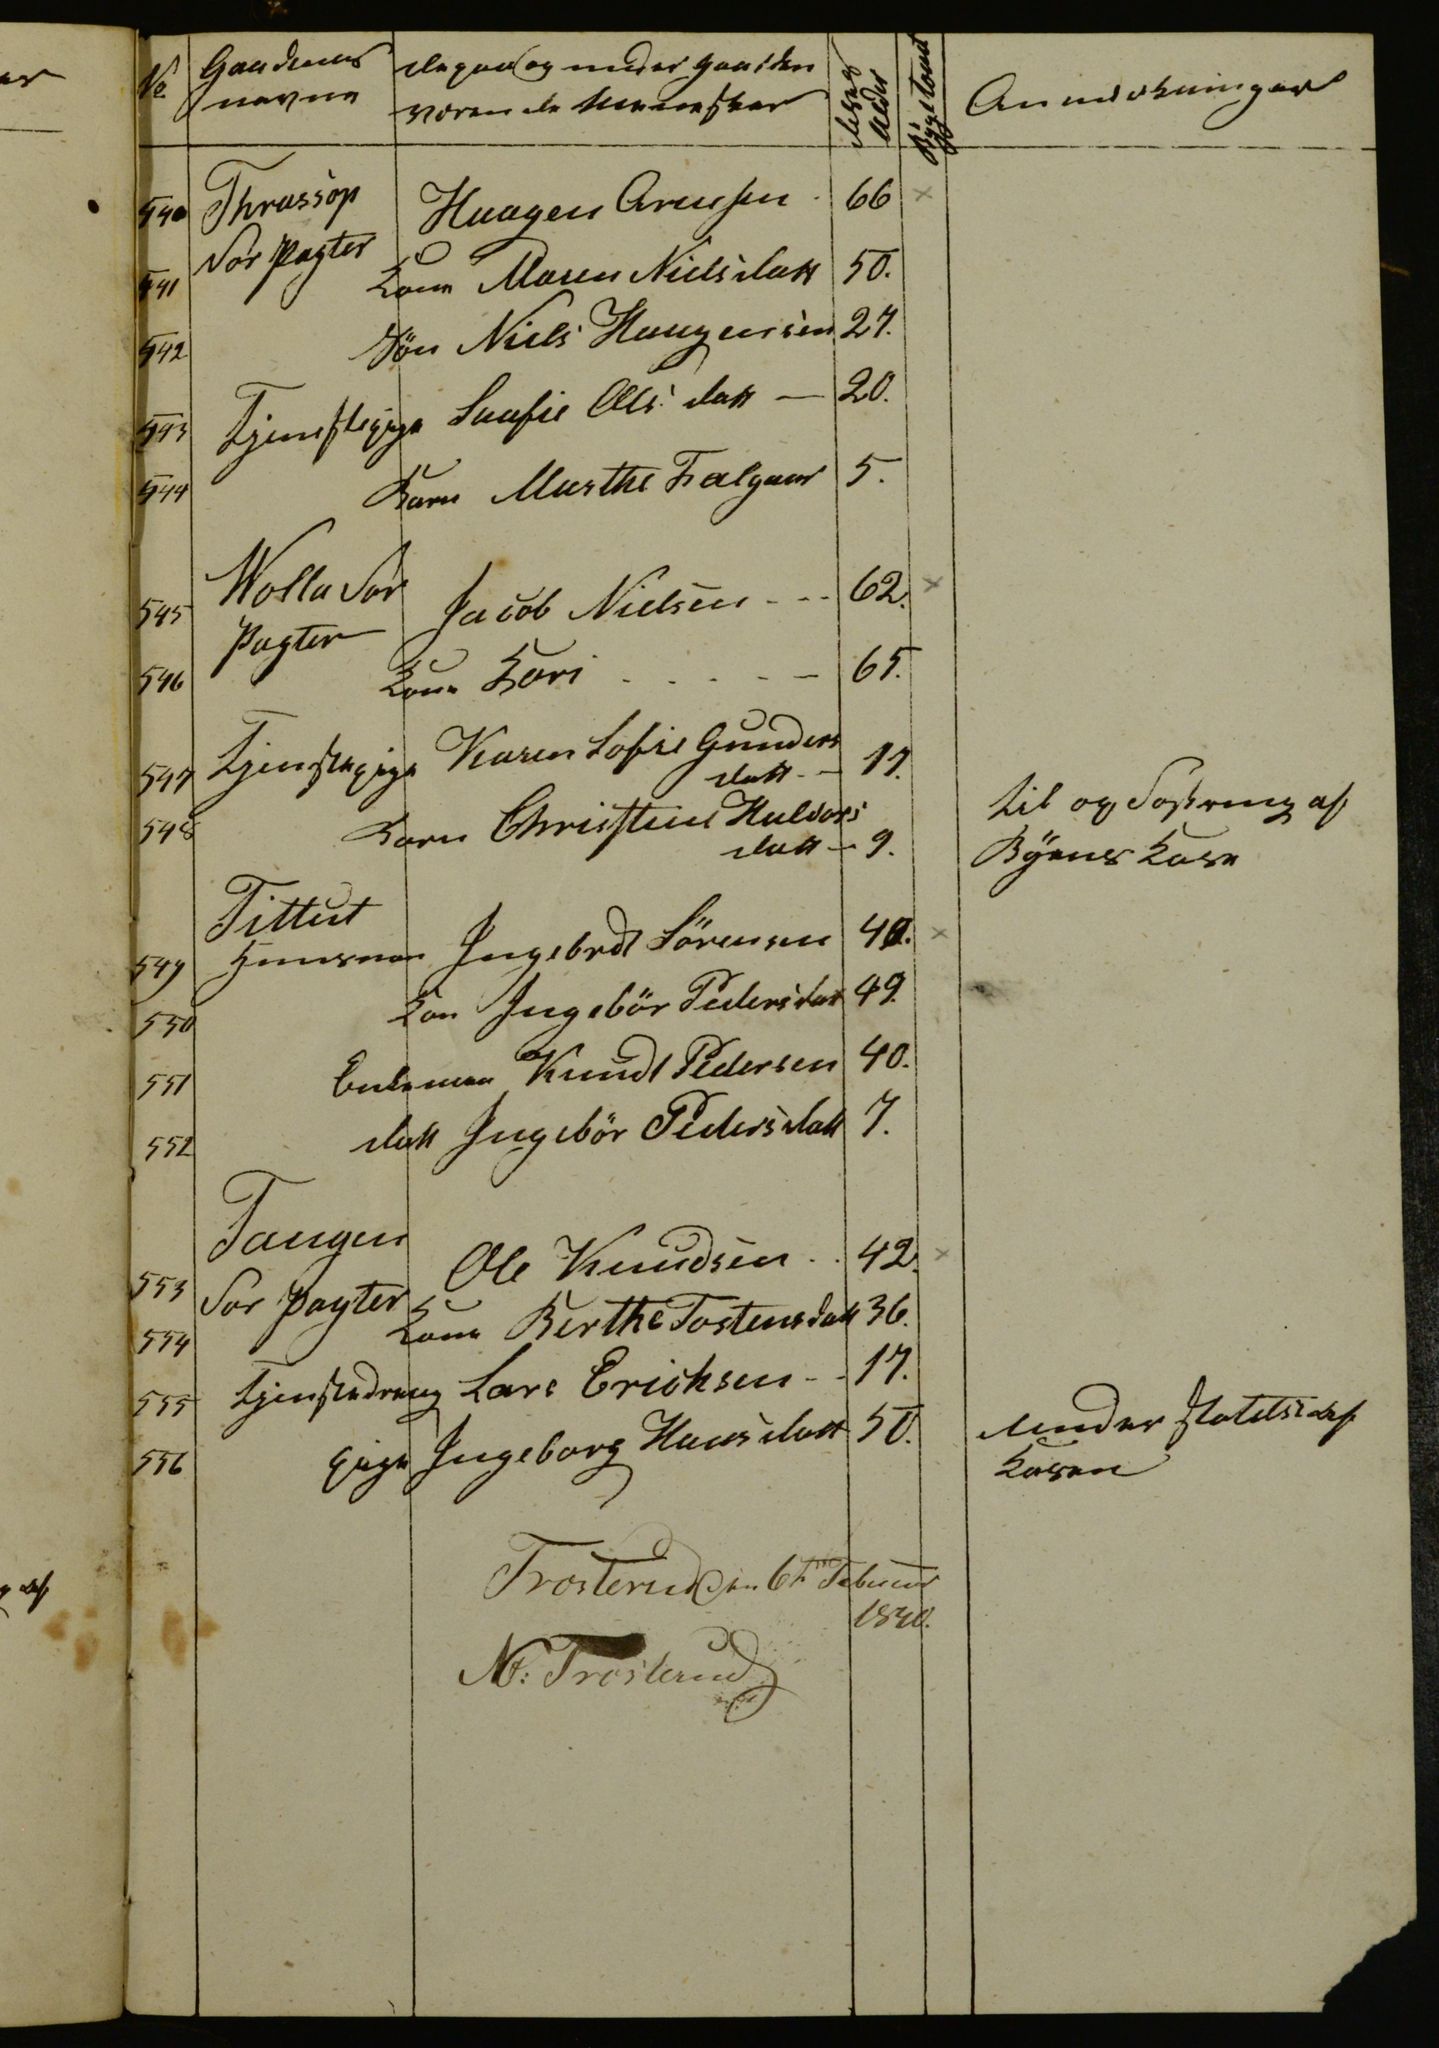 No Gaardenes navne de paa og under gaarden værende Mennesker deres Alder Bygstand Anmerkninger
540 Thrassop Haagen Arnesen 66 ×
Forpagter
541 Kone Maren Nielsdatt 50.
542 Søn Niels Haagensen 27.
543 Tjenstepige Saafie Ols datt — 20.
544 Barn Marthe Falgaar 5.
Wolla For
545 Jacob Nielsen - - - 62. ×
Pagter
546 Kone Kari - - - - - 65.
547 Tjenstepige Karen Sofie Gunders
datt - - 17.
548 Barn Christine Halvors
datt - 9.
til opfostring af
Byens Kase
Tittut
549 Huusman Ingebrdt Sörensen 40. ×
550 Kon Ingebör Pedersdat 49.
551 Enkeman Knudt Pedersen 40.
552 datt Ingebör Pedersdatt 7.
Tangen
553 Ole Knudsen - - 42. ×
For pagter
554 Kone Berthe Tostensdatt 36.
555 Tjenstedreng Lars Erichsen - - 17.
556 pige Ingeborg Hansdatt 50. Understøttelse af
Kasen
Trosterud den 6te Februar
1840.
N: Trosterud
af